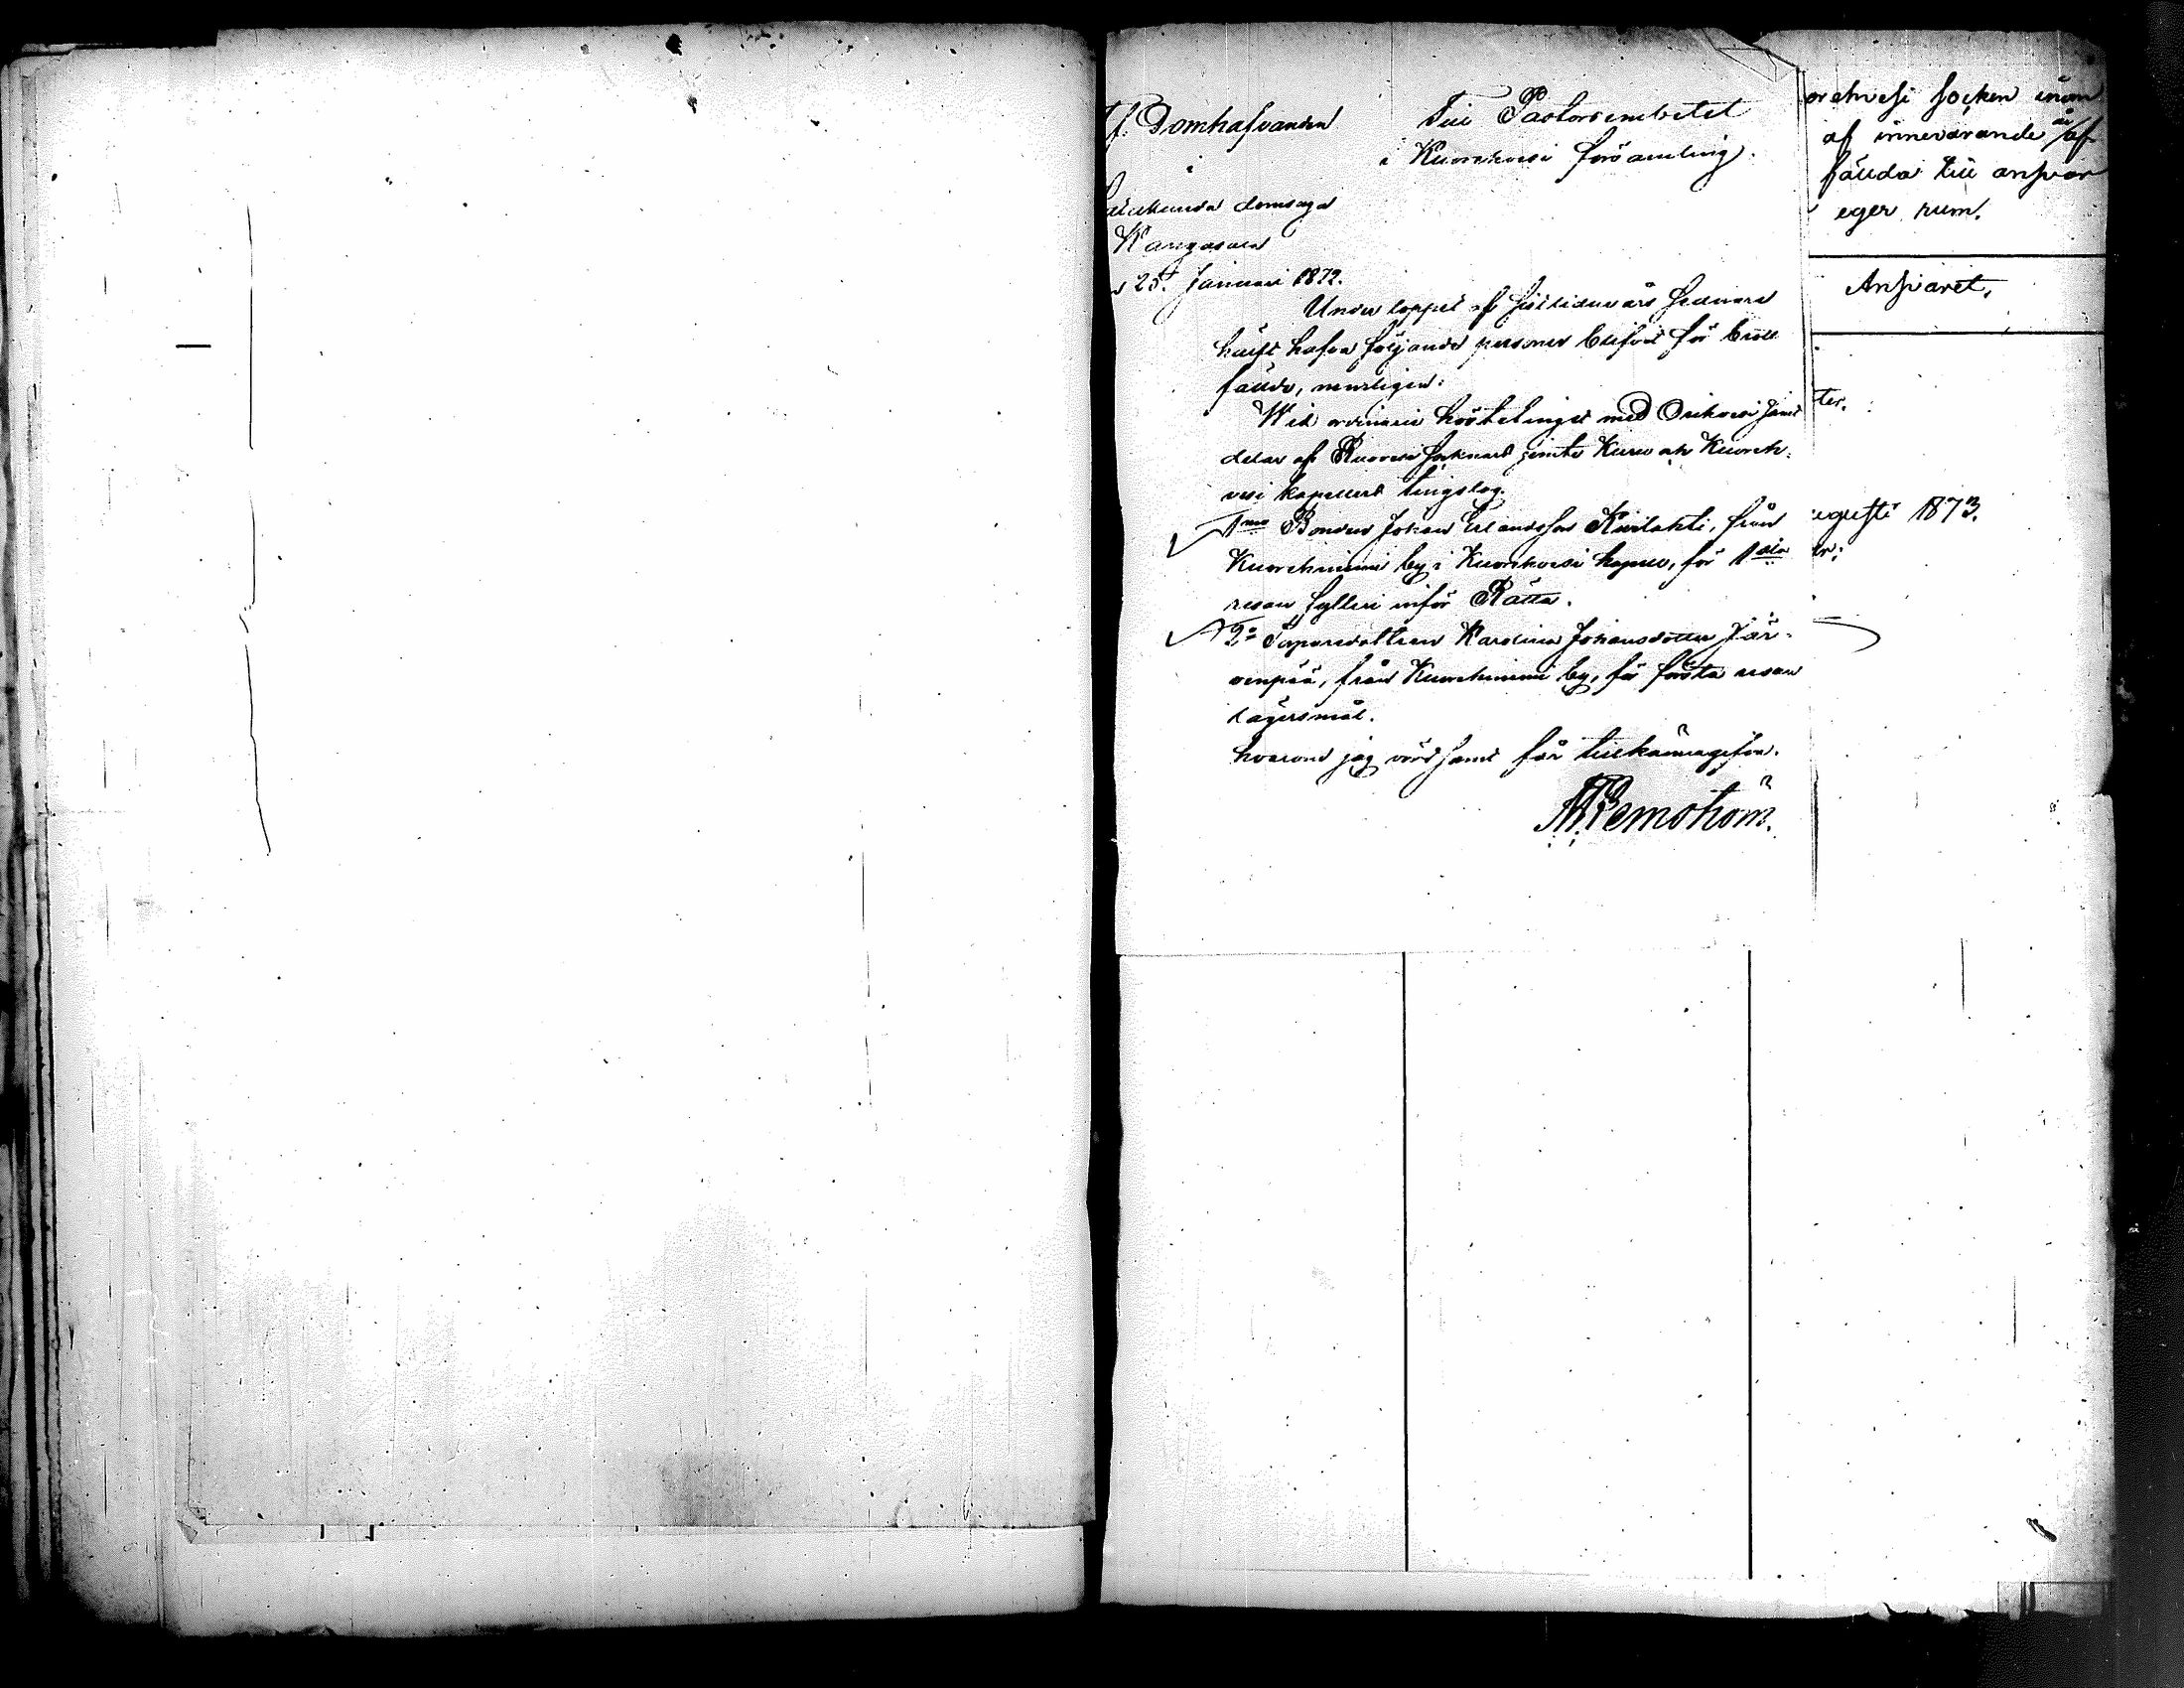 T.f. Domhafvanden
i
domsaga
Kangasala
d 25. Januari 1872.
Till Pastorsembetet
i Kuorehvesi församling.
Under loppet af sistlidne års sednare
hälft hafva följande personer blifvit för brott
fällde, nemligen:
Wid ordinarie hösttinget med Orihvesi samt
delar af Ruovesi socknars jemte Kuru och Kuoreh-
vesi kapellers tingslag.
1mo Bonden Johan Erlandsson Kivilahti, från
Kuorehniemi by i Kuorehvesi kapell, för 1sta
resan fylleri inför Rätta.
2o Torparedottren Karolina Johansdotter Jär-
venpää, från Kuorehniemi by, för första resan
lägersmål.
hvarom jag vördsamt får tillkännagifva.
orehvesi socken inom
af innevarande år af-
fällda till ansvar
eger rum.
Ansvaret.
ter.
ugusti 1873.
er: